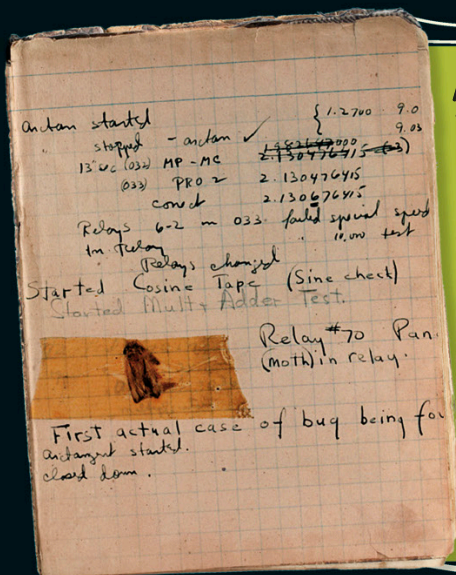 arctan started { 1.2700 9.0
" stopped - arctan ✓ 9.03
13" uc (032) MP - MC 2.130476415
(033) PRO 2 2.130476415
conect 2.130676415
Relays 6-2 in 033 failed special speed
In Relay " 10,000 test
Relays changed
Started Cosine Tape (Sine check)
Started Mult + Adder Test.
Relay #70 Pan
(moth) in relay.
First actual case of bug being fo
arctangent started.
closed down.